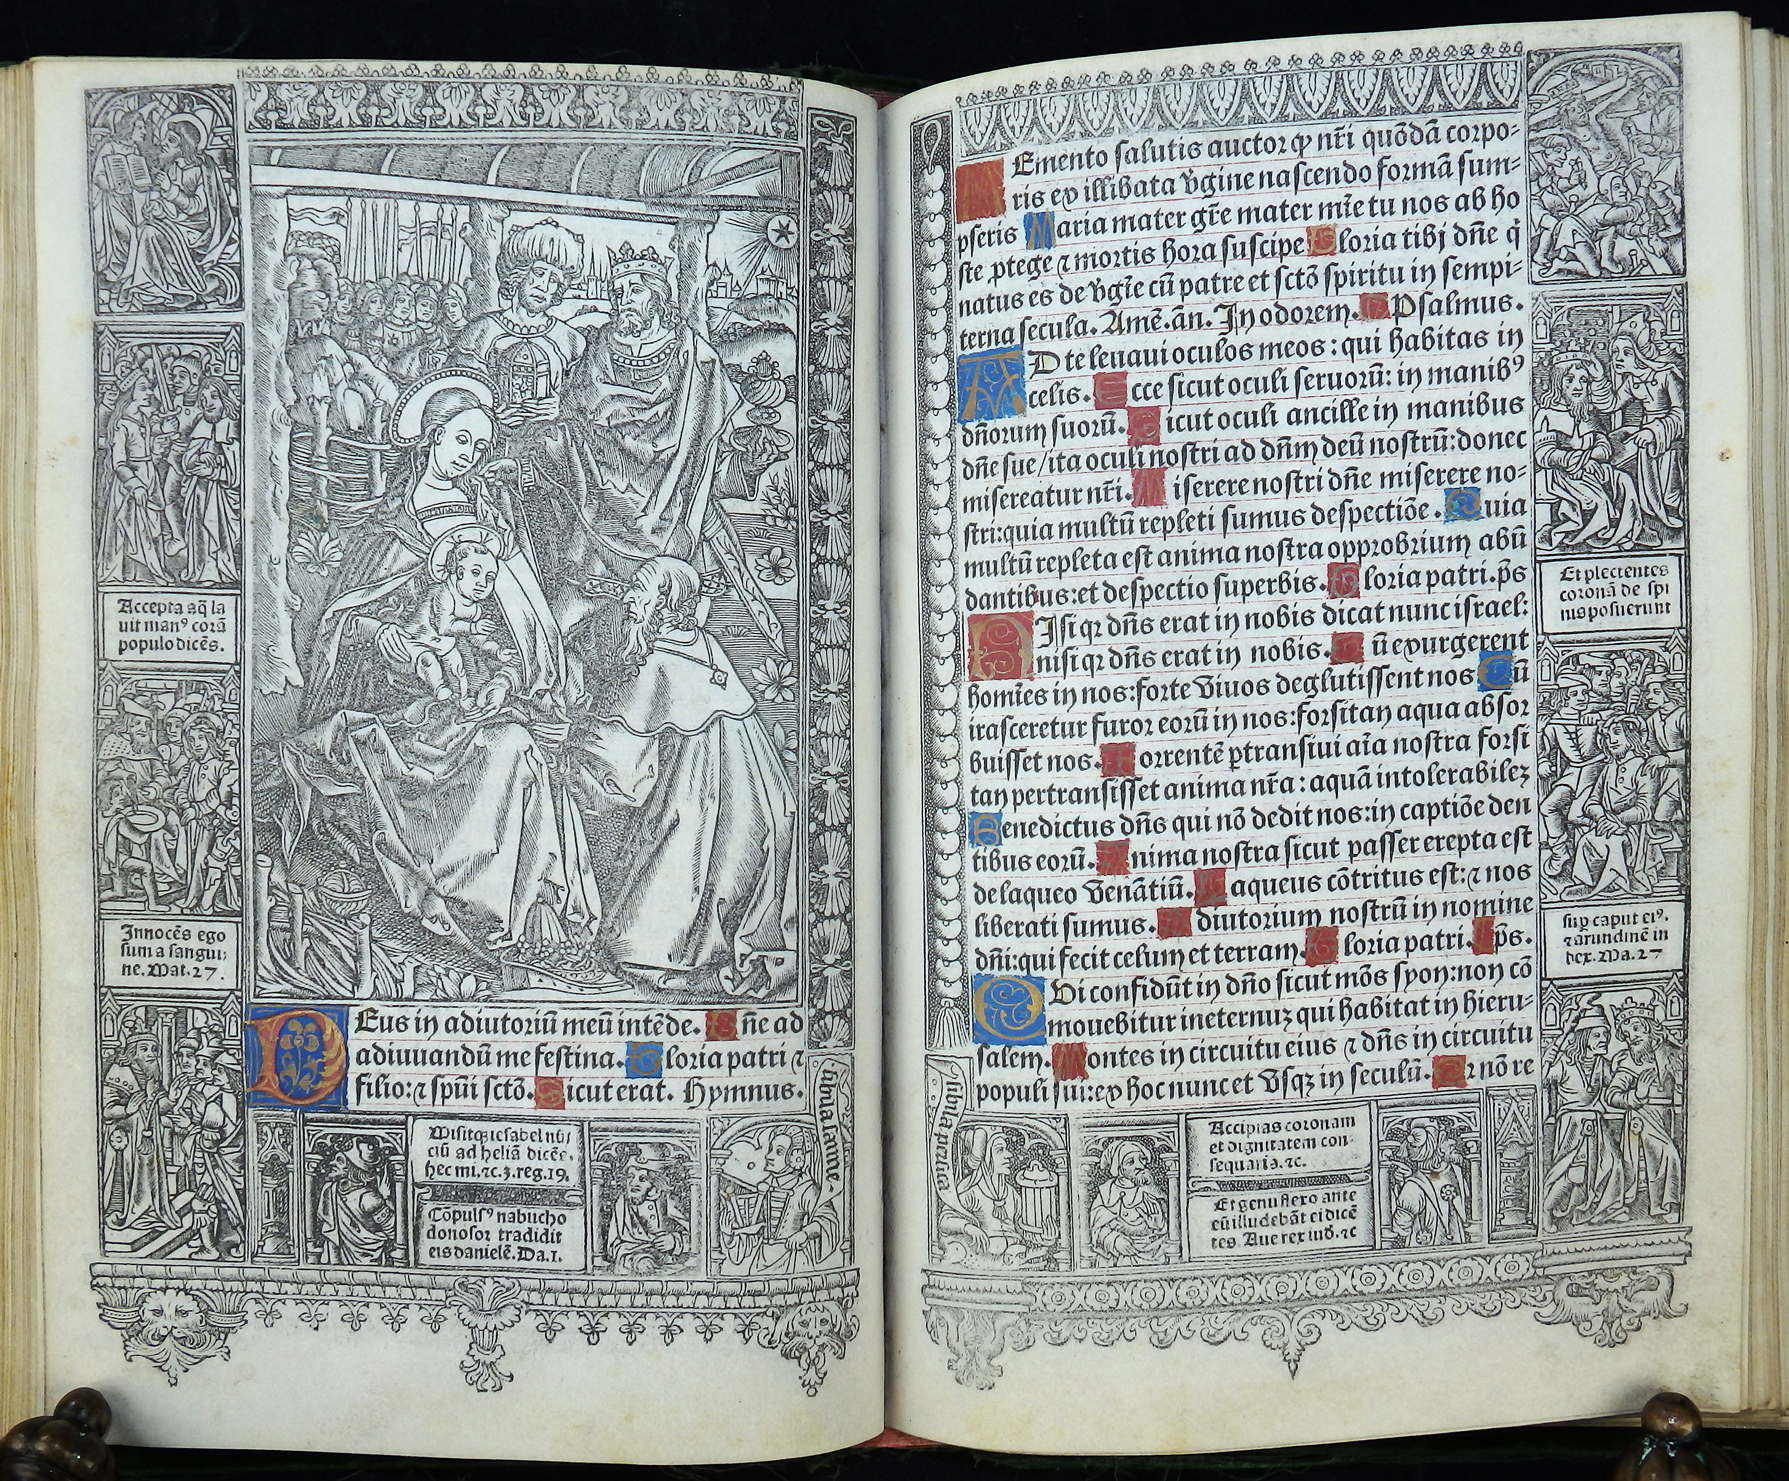 Accepta aq̄ la
uit manꝰ corā
populo dicēs.
Innocēs ego
sum a sangui⸗
ne. Mat. 27.
DEus in adiutoriū meū intēde. Dñe ad
adiuuandū me festina. Gloria patri ⁊
filio: ⁊ spūi sctō. Sicut erat. Hymnus.
Misitqꝫ iesabel nū⸗
ciū ad heliā dicēs.
hec mi. ⁊c. 3. reg. 19.
Cōpulsꝰ nabucho
donosor tradidit
eis danielē. Da. 1.
MEmento salutis auctor ꝙ nr̄i quōdā corpo⸗
ris ex illibata v̄gine nascendo formā sum⸗
pseris Maria mater gr̄e mater mīe tu nos ab ho
ste ꝓtege ⁊ mortis hora suscipe Gloria tibi dñe q̇
natus es de v̄gīe cū patre et sctō spiritu in sempi⸗
terna secula. Amē. añ. In odorem. Psalmus.
AD te leuaui oculos meos: qui habitas in
celis. Ecce sicut oculi seruorū: in manibꝰ
dñorum suorū. Sicut oculi ancille in manibus
dñe sue/ ita oculi nostri ad dñm deū nostrū: donec
misereatur nr̄i. Miserere nostri dñe miserere no⸗
stri: quia multū repleti sumus despectiōe. Quia
multū repleta est anima nostra opprobrium abū
dantibus: et despectio superbis. Gloria patri. p̄s
NIsi qꝛ dñs erat in nobis dicat nunc israel:
nisi qꝛ dñs erat in nobis. Cū exurgerent
homīes in nos: forte viuos deglutissent nos Cū
irasceretur furor eorū in nos: forsitan aqua absor
buisset nos. Torrentē ꝑtransiui aīa nostra forsi
tan pertransisset anima nr̄a: aquā intolerabileꝫ
Benedictus dñs qui nō dedit nos: in captiōe den
tibus eorū. Anima nostra sicut passer erepta est
de laqueo venātiū. Laqueus cōtritus est: ⁊ nos
liberati sumus. Adiutorium nostrū in nomine
dñi: qui fecit celum et terram. Gloria patri. p̄s.
QVi confidūt in dño sicut mōs syon: non cō
mouebitur in eternuꝫ qui habitat in hieru⸗
salem. Montes in circuitu eius ⁊ dñs in circuitu
populi sui: ex hoc nunc et vsqꝫ in seculū. Qꝛ nō re
Et plectentes
coronā de spi
nis posuerunt
sup caput eiꝰ.
⁊ arundinē in
dex. Ma. 27
Accipias coronam
et dignitatem con⸗
sequaria. ⁊c.
Et genu flexo ante
eū illudebāt ei dicē
tes. Aue rex iud. ⁊c